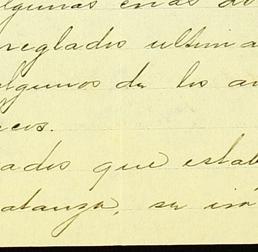 algunas en
reglados ultima
algunos de los a
cos.
ados que estab
atanza, se ira